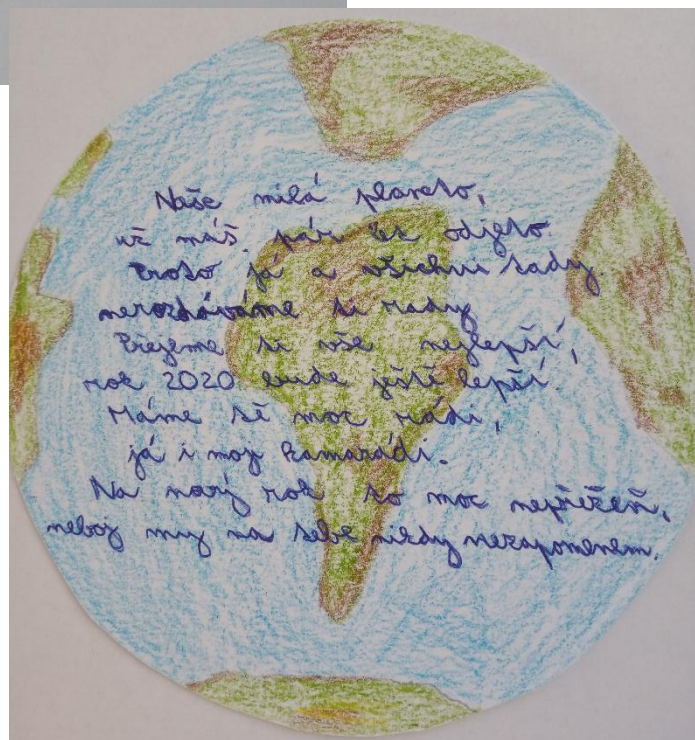 Naše milá planeto,
už máš pár let odjeto.
Proto já a všichni tady
nerozdáváme ti rady.
Přejeme ti vše nejlepší,
rok 2020 bude ještě lepší.
Máme tě moc rádi,
já i moji kamarádi.
Na nový rok to moc nepřežeň,
neboj my na tebe nikdy nezapomenem.